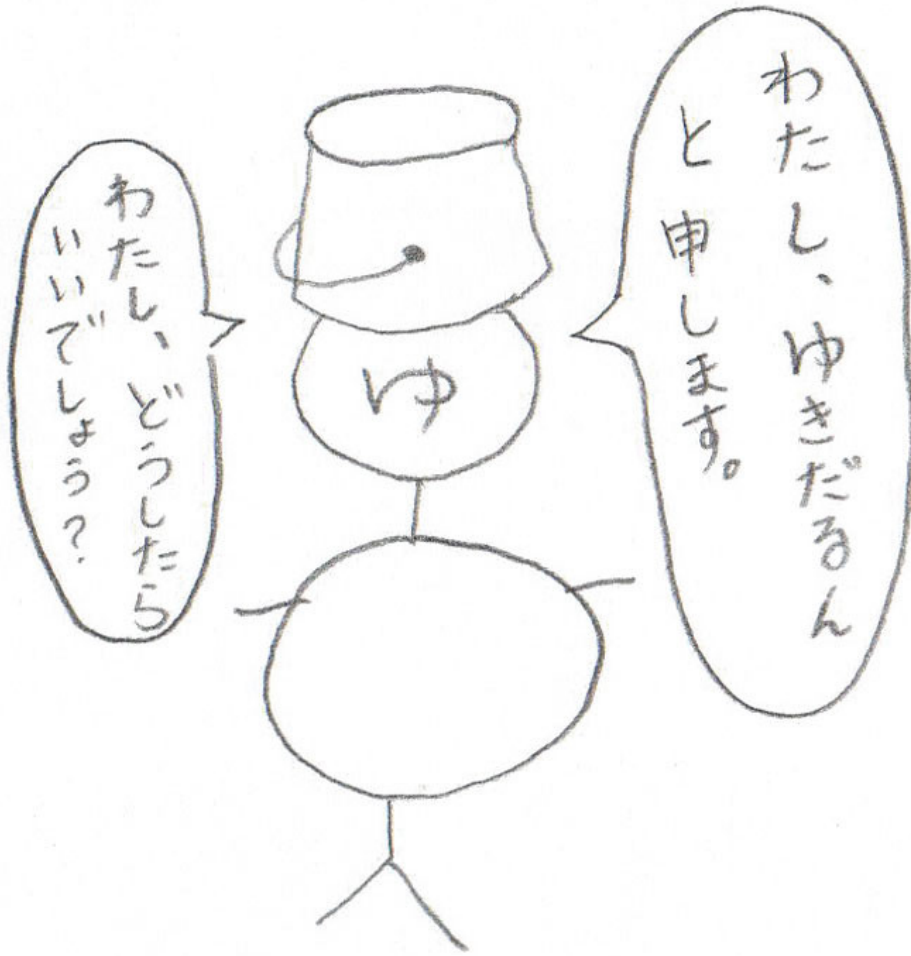 わたし、ゆきだるん
と申します。
ゆ
わたし、どうしたら
いいでしょう?